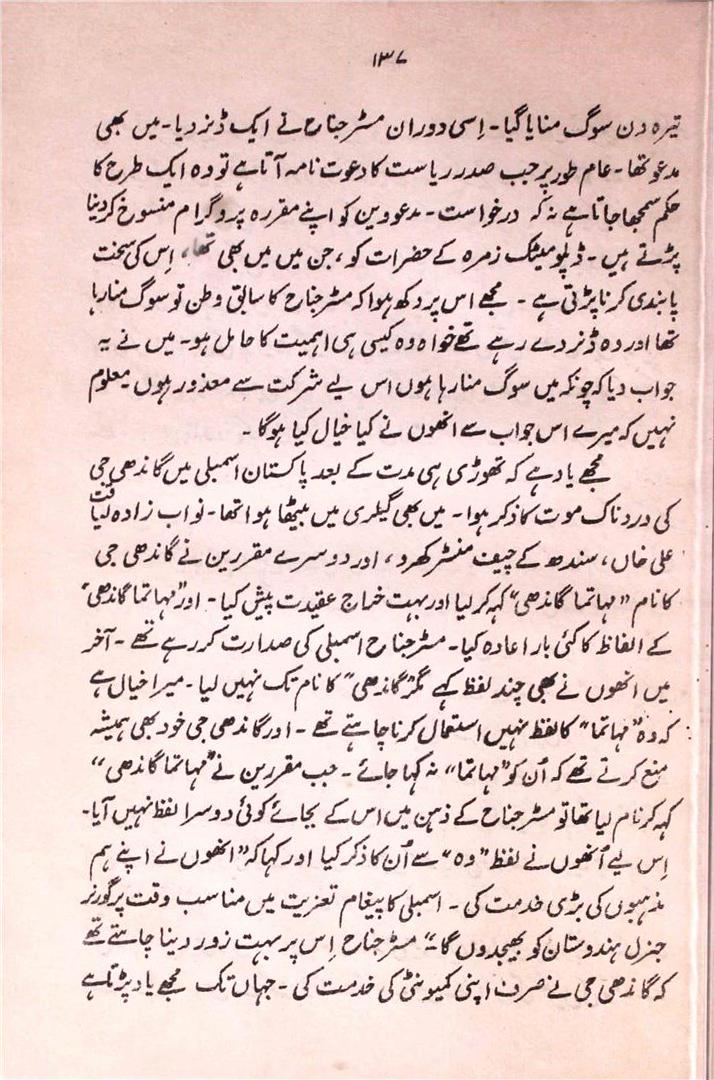 ۱۳۷
تیرہ دن سوگ منایا گیا۔ اِسی دوران مسٹر جناح نے ایک ڈنر دیا۔ میں بھی
مدعو تھا۔ عام طور پر جب صدر ریاست کا دعوت نامہ آتا ہے تو وہ ایک طرح کا
حکم سمجھا جاتا ہے نہ کہ درخواست۔ مدعووین کو اپنے مقررہ پروگرام منسوخ کر دینا
پڑتے ہیں۔ ڈپلومیٹک زمرہ کے حضرات کو، جن میں میں بھی تھا، اِس کی سخت
پابندی کرنا پڑتی ہے۔ مجھے اس پر دکھ ہوا کہ مسٹر جناح کا سابق وطن تو سوگ منا رہا
تھا اور وہ ڈنر دے رہے تھے خواہ وہ کیسی ہی اہمیت کا حامل ہو۔ میں نے یہ
جواب دیا کہ چونکہ میں سوگ منا رہا ہوں اس لیے شرکت سے معذور ہوں معلوم
نہیں کہ میرے اس جواب سے انھوں نے کیا خیال کیا ہوگا۔
مجھے یاد ہے کہ تھوڑی ہی مدت کے بعد پاکستان اسمبلی میں گاندھی جی
کی دردناک موت کا ذکر ہوا۔ میں بھی گیلری میں بیٹھا ہوا تھا۔ نواب زادہ لیاقت
علی خاں، سندھ کے چیف منسٹر کھرد، اور دوسرے مقررین نے گاندھی جی
کا نام "مہاتما گاندھی" کہہ کر لیا اور بہت خراج عقیدت پیش کیا۔ اور "مہاتما گاندھی"
کے الفاظ کا کئی بار اعادہ کیا۔ مسٹر جناح اسمبلی کی صدارت کر رہے تھے۔ آخر
میں انھوں نے بھی چند لفظ کہے مگر "گاندھی" کا نام تک نہیں لیا۔ میرا خیال ہے
کہ وہ "مہاتما" کا لفظ نہیں استعمال کرنا چاہتے تھے۔ اور گاندھی جی خود بھی ہمیشہ
منع کرتے تھے کہ اُن کو "مہاتما" نہ کہا جائے۔ جب مقررین نے "مہاتما گاندھی"
کہہ کر نام لیا تھا تو مسٹر جناح کے ذہن میں اس کے بجائے کوئی دوسرا لفظ نہیں آیا۔
اِس لیے اُنھوں نے لفظ "وہ" سے اُن کا ذکر کیا اور کہا کہ "انھوں نے اپنے ہم
مذہبوں کی بڑی خدمت کی۔ اسمبلی کا پیغام تعزیت میں مناسب وقت پر گورنر
جنرل ہندوستان کو بھیجدوں گا۔" مسٹر جناح اِس پر بہت زور دینا چاہتے تھے
کہ گاندھی جی نے صرف اپنی کمیونٹی کی خدمت کی۔ جہاں تک مجھے یاد پڑتا ہے